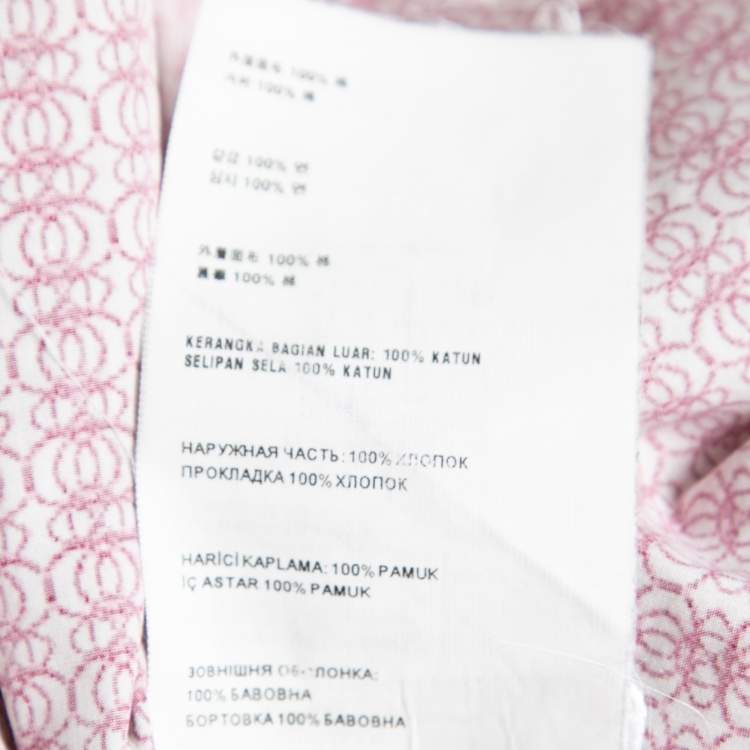 外層面布 100% 棉
100% 棉
겉감 100% 면
심지 100% 면
外層面布 100% 棉
裏襯 100% 棉
KERANGKA BAGIAN LUAR: 100% KATUN
SELIPAN SELA 100% KATUN
НАРУЖНАЯ ЧАСТЬ: 100% ХЛОПОК
ПРОКЛАДКА 100% ХЛОПОК
HARİCİ KAPLAMA: 100% PAMUK
İÇ ASTAR 100% PAMUK
ЗОВНІШНЯ ОБОЛОНКА:
100% БАВОВНА
БОРТОВКА 100% БАВОВНА